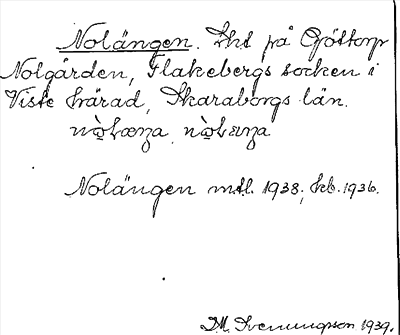 Nolängen. Lht på Göttorp
Nolgården, Flakebergs socken i
Viste härad, Skaraborgs län.
Nolängen mtl. 1938; kb. 1936.
D.M. Svenungsson 1939.